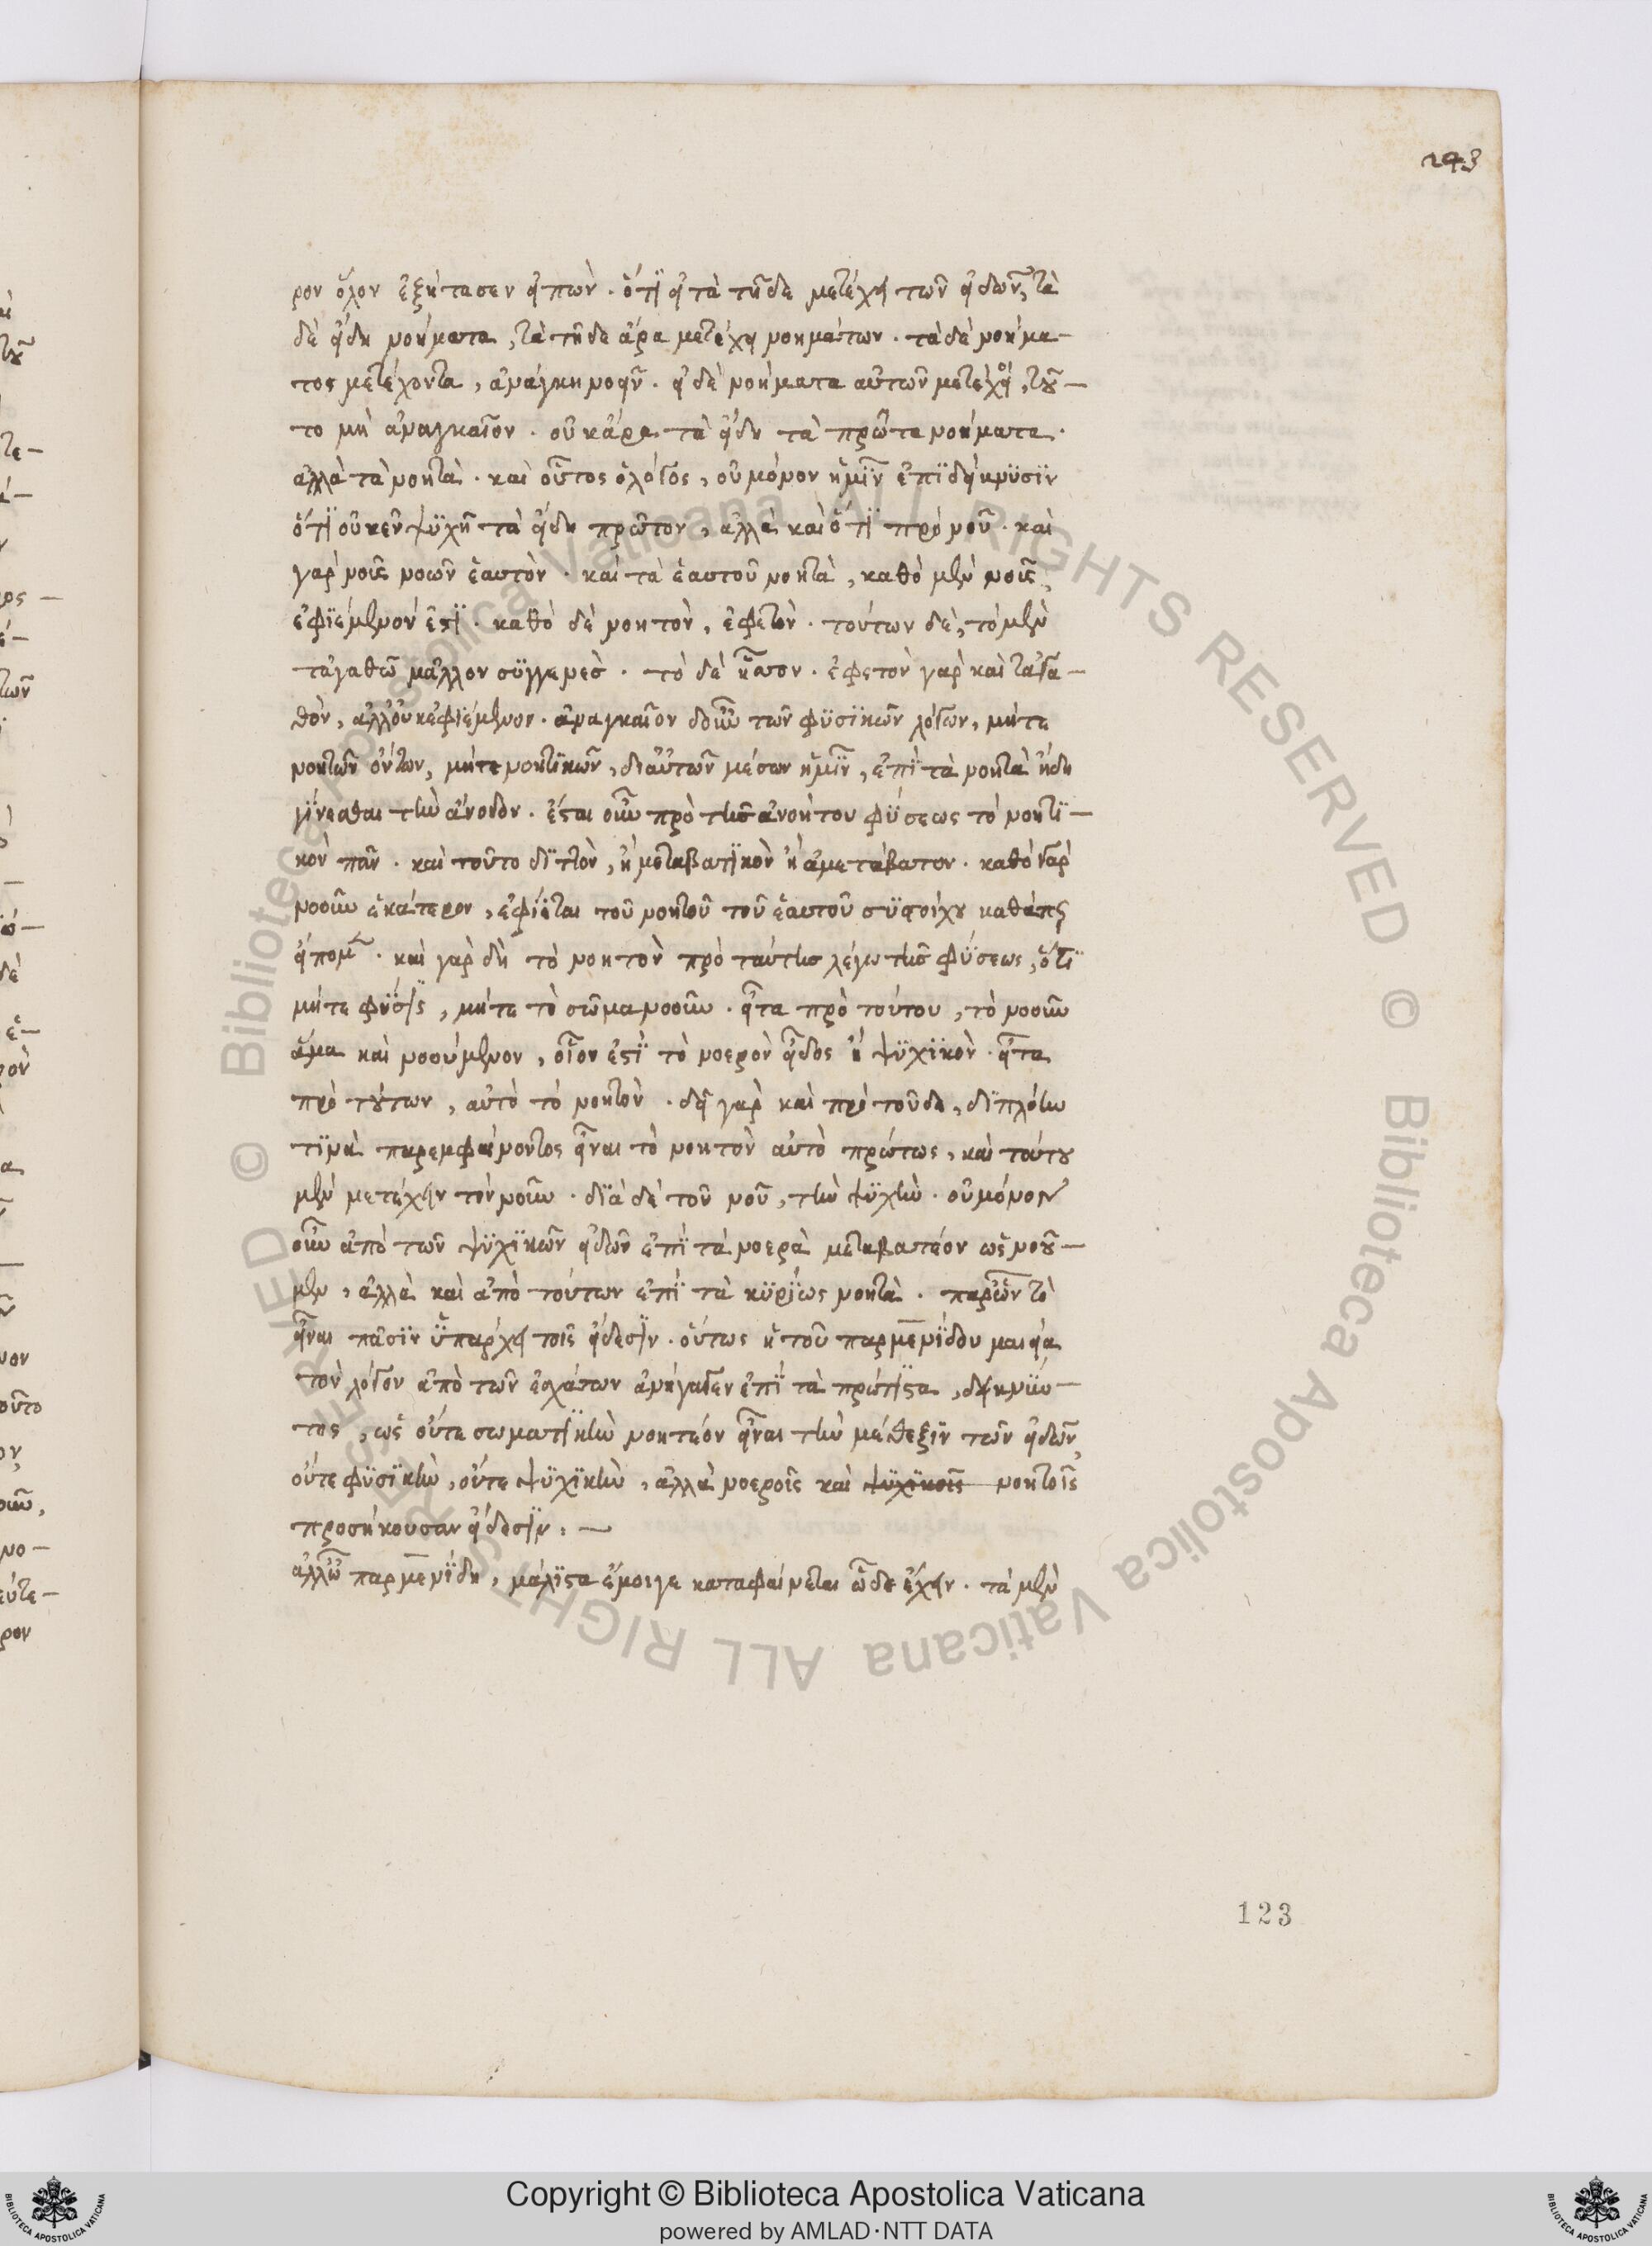 243
ρον ὅλον ἐξήτασεν εἰπών· ὅτι εἰ τὰ τῆδε μετέχει τῶν εἰδῶν, τὰ
δὲ εἴδη νοήματα, τὰ τῆδε ἄρα μετέχει νοημάτων· τὰ δὲ νοήμα-
τος μετέχοντα, ἀνάγκη νοεῖν· εἰ δὲ νοήματα αὐτῶν μετέχοι, τοῦ-
το μὴ ἀναγκαῖον· οὐκ ἄρα τὰ εἴδη τὰ πρῶτα νοήματα·
ἀλλὰ τὰ νοητά· καὶ οὗτος ὁ λόγος, οὐ μόνον ἡμῖν ἐπιδείκνυσιν
ὅτι οὐκ ἐν ψυχῇ τὰ εἴδη πρῶτον, ἀλλὰ καὶ ὅτι πρὸ νοῦ· καὶ
γὰρ νοῦς νοῶν ἑαυτόν· καὶ τὰ ἑαυτοῦ νοητά, καθὸ μὲν νοῦς,
ἐφιέμενόν ἐστι· καθὸ δὲ νοητόν, ἐφετόν· τούτων δὲ, τὸ μὲν
τἀγαθῶ μᾶλλον συγγενές· τὸ δὲ ἧσσον· ἐφετὸν γὰρ καὶ τἀγα-
θόν, ἀλλ' οὐκ ἐφιέμενον· ἀναγκαῖον δ' οὖν τῶν φυσικῶν λόγων, μήτε
νοητῶν ὄντων, μήτε νοητικῶν, δι' αὐτῶν μέσων ἡμῖν, ἐπὶ τὰ νοητὰ ἤδη
γίνεσθαι τὴν ἄνοδον· ἔσται οὖν πρὸ τῆς ἀνοήτου φύσεως τὸ νοητι-
κὸν πᾶν· καὶ τοῦτο διττόν, ἢ μεταβατικὸν ἢ ἀμετάβατον· καθὸ γὰρ
νοοῦν ἑκάτερον, ἐφίεται τοῦ νοητοῦ τοῦ ἑαυτοῦ συστοίχου καθάπερ
εἴπομεν· καὶ γὰρ δὴ τὸ νοητὸν πρὸ ταύτης λέγω τῆς φύσεως, ὅτι
μήτε φύσις, μήτε τὸ σῶμα νοοῦν· εἶτα πρὸ τούτου, τὸ νοοῦν
ἅμα καὶ νοούμενον, οἷον ἐστὶ τὸ νοερὸν εἶδος ἢ ψυχικόν· εἶτα
πρὸ τούτων, αὐτὸ τὸ νοητόν· δεῖ γὰρ καὶ πρὸ τοῦδε, διπλόην
τινὰ παρεμφαίνοντος εἶναι τὸ νοητὸν αὐτὸ πρώτως, καὶ τούτου
μὲν μετέχειν τὸν νοῦν· διὰ δὲ τοῦ νοῦ, τὴν ψυχήν· οὐ μόνον
οὖν ἀπὸ τῶν ψυχικῶν εἰδῶν ἐπὶ τὰ νοερὰ μεταβατέον ὡς νοῦ-
μεν, ἀλλὰ καὶ ἀπὸ τούτων ἐπὶ τὰ κυρίως νοητά· παρ' ὧν τὸ
εἶναι πᾶσιν ὑπάρχει τοῖς εἴδεσιν· οὕτως ἡ τοῦ παρμενίδου μαιεία
τὸν λόγον ἀπὸ τῶν ἐσχάτων ἀνήγαγεν ἐπὶ τὰ πρώτιστα, δεικνύν-
τος, ὡς οὔτε σωματικὴν νοητέον εἶναι τὴν μέθεξιν τῶν εἰδῶν,
οὔτε φυσικήν, οὔτε ψυχικήν, ἀλλὰ νοεροῖς καὶ ψυχικοῖς νοητοῖς
προσήκουσαν εἴδεσιν: —
ἀλλ' ὦ παρμενίδη, μάλιστα ἔμοιγε καταφαίνεται ὧδε ἔχειν· τὰ μὲν
123